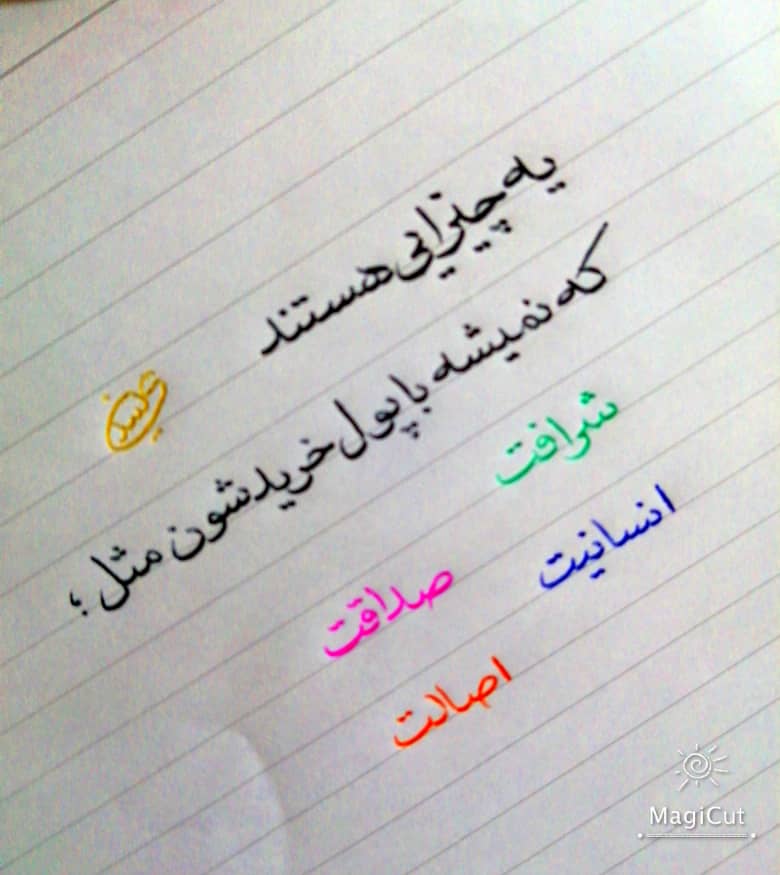 یه چیزایی هستند
که نمیشه با پول خریدشون مثل؛
شرافت
انسانیت
صداقت
اصالت
MagiCut